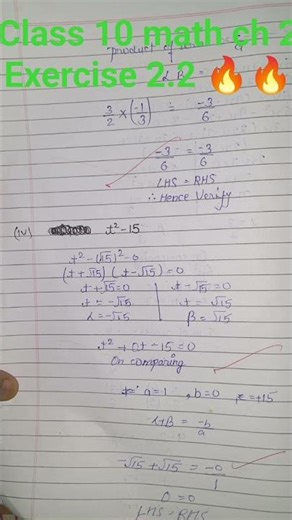 Class 10 math ch 2
Exercise 2.2 🔥🔥
product of
β =
3/2 × (-1/3) = -3/6
-3/6 = -3/6
LHS = RHS
∴ Hence Verify
(iv) t²-15
t²-(√15)²=0
(t+√15) (t-√15)=0
t+√15=0 t-√15=0
t=-√15 t=√15
α=-√15 β=√15
t²+0t-15=0
On comparing
a=1, b=0, c=+15
α+β = -b/a
-√15+√15 = -0/1
0=0
LHS=RHS